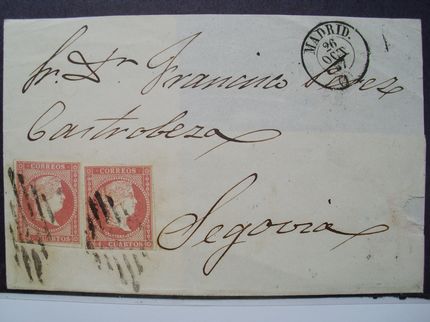 MADRID.
26
OCT
Sr. Dn. Francisco
Castrobeza
CORREOS
CORREOS
CUARTOS
CUARTOS
Segovia